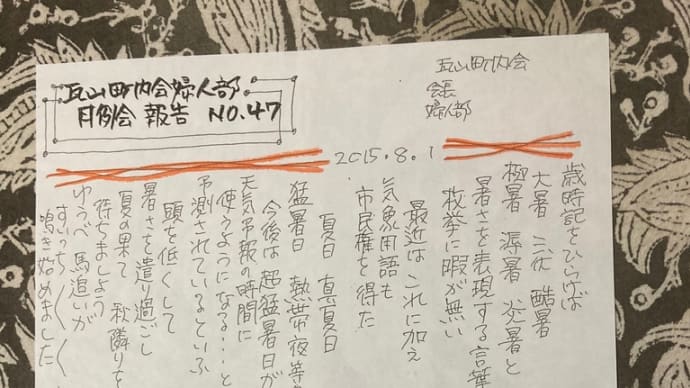 瓦山町内会婦人部
月例会 報告 NO.47
瓦山町内会
会長
婦人部
2015.8.1
歳時記をひらけば
大暑 三伏 酷暑
極暑 溽暑 炎暑と
暑さを表現する言葉
枚挙に暇が無い
最近は これに加え
気象用語も
市民権を得た
夏日 真夏日
猛暑日 熱帯夜等
今後は 超猛暑日が
天気予報の時間に
使うようになる・・・と
予測されているといふ
頭を低くして
暑さを遣り過ごし
夏の果て 秋隣りを
待ちましょう
ゆうべ 馬追いが
すいっち〱〱
鳴き始めました